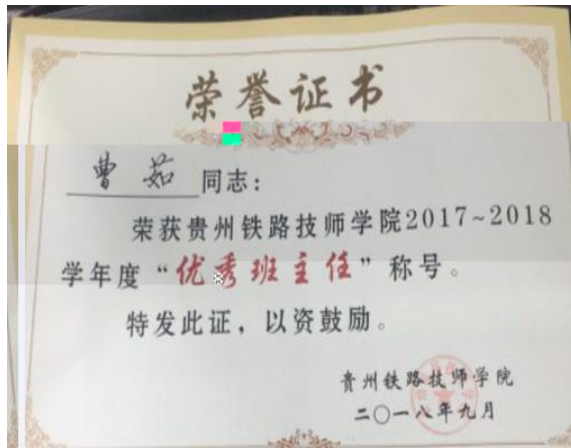 荣誉证书
曹茹 同志：
荣获贵州铁路技师学院2017~2018
学年度“优秀班主任”称号。
特发此证，以资鼓励。
贵州铁路技师学院
二〇一八年九月